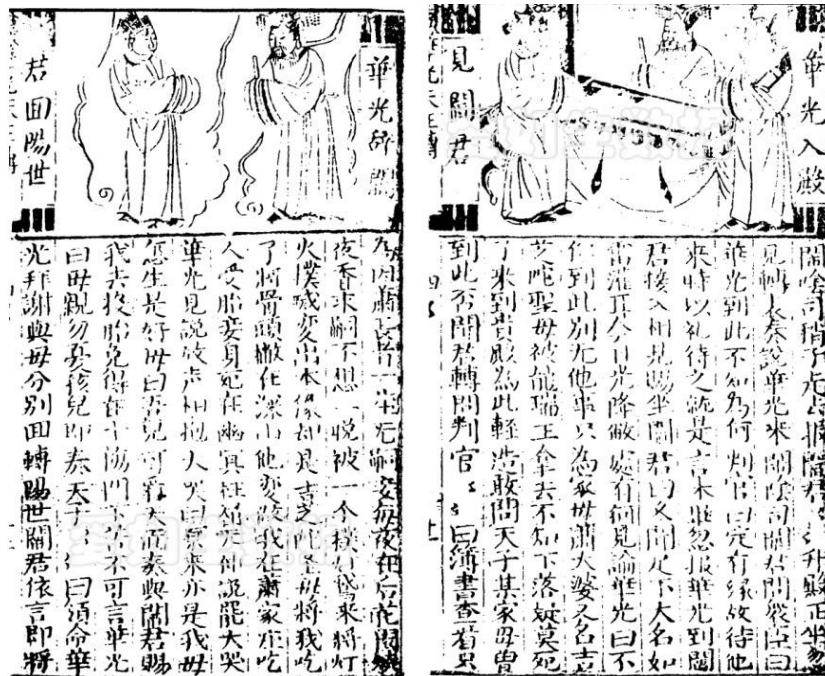 華光入殿
見閻君
閙陰司報閻君升殿正坐
見轉奏說華光來閙陰司閻君問衆臣曰
華光到此不知為何判官曰定有縁故待他
來時以礼待之就是言未畢忽報華光到閻
君接入相見賜坐閻君曰久聞足下大名如
雷灌頂今日光降敝處有何見諭華光曰不
到此別无他事只為家母蕭太婆又名吉
芝陀聖母被龍瑞王拿去不知下落疑莫死
了來到貴殿為此輕造敢問天子其家母曾
到此否閻君轉問判官〻曰簿書查看只
華光辞閻
君囬陽世
為因蕭長者一生无嗣妾每夜在后花園燒
夜香求嗣不想一晚被一个撲灯鵞來將灯
火撲滅変出本像却是吉芝陀圣母將我吃
了將骨頭撇在深山他変做我在蕭家庄吃
人受胎妾身死在幽冥枉說罷大哭
華光見說放声相抱大哭曰原來亦是我母
怎生是好母曰吾兒可奏與閻君賜
我去投胎免得在門下不可言華光
曰母親勿憂孩兒即奏天子曰領命華
光拜謝與母分別囬轉陽世閻君依言即將